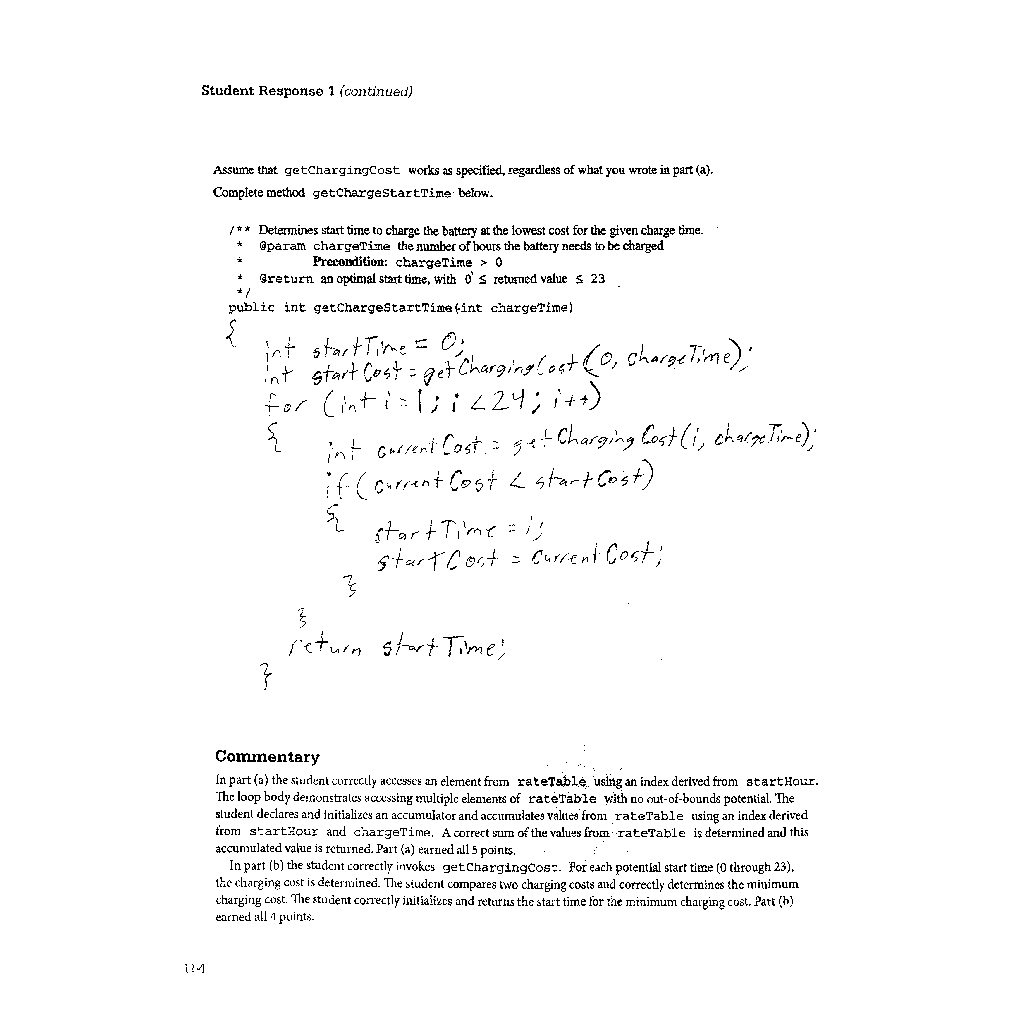 Student Response 1 (continued)
Assume that getChargingCost works as specified, regardless of what you wrote in part (a).
Complete method getChargeStartTime below.
/** Determines start time to charge the battery at the lowest cost for the given charge time.
* @param chargeTime the number of hours the battery needs to be charged
* Precondition: chargeTime > 0
* @return an optimal start time, with 0 ≤ returned value ≤ 23
*/
public int getChargeStartTime(int chargeTime)
{
int startTime = 0;
int startCost = getChargingCost(0, chargeTime);
for (int i = 1; i < 24; i++)
{
int currentCost = getChargingCost(i, chargeTime);
if (currentCost < startCost)
{
startTime = i;
startCost = currentCost;
}
}
return startTime;
}
Commentary
In part (a) the student correctly accesses an element from rateTable using an index derived from startHour.
The loop body demonstrates accessing multiple elements of rateTable with no out-of-bounds potential. The
student declares and initializes an accumulator and accumulates values from rateTable using an index derived
from startHour and chargeTime. A correct sum of the values from rateTable is determined and this
accumulated value is returned. Part (a) earned all 5 points.
In part (b) the student correctly invokes getChargingCost. For each potential start time (0 through 23),
the charging cost is determined. The student compares two charging costs and correctly determines the minimum
charging cost. The student correctly initializes and returns the start time for the minimum charging cost. Part (b)
earned all 4 points.
114